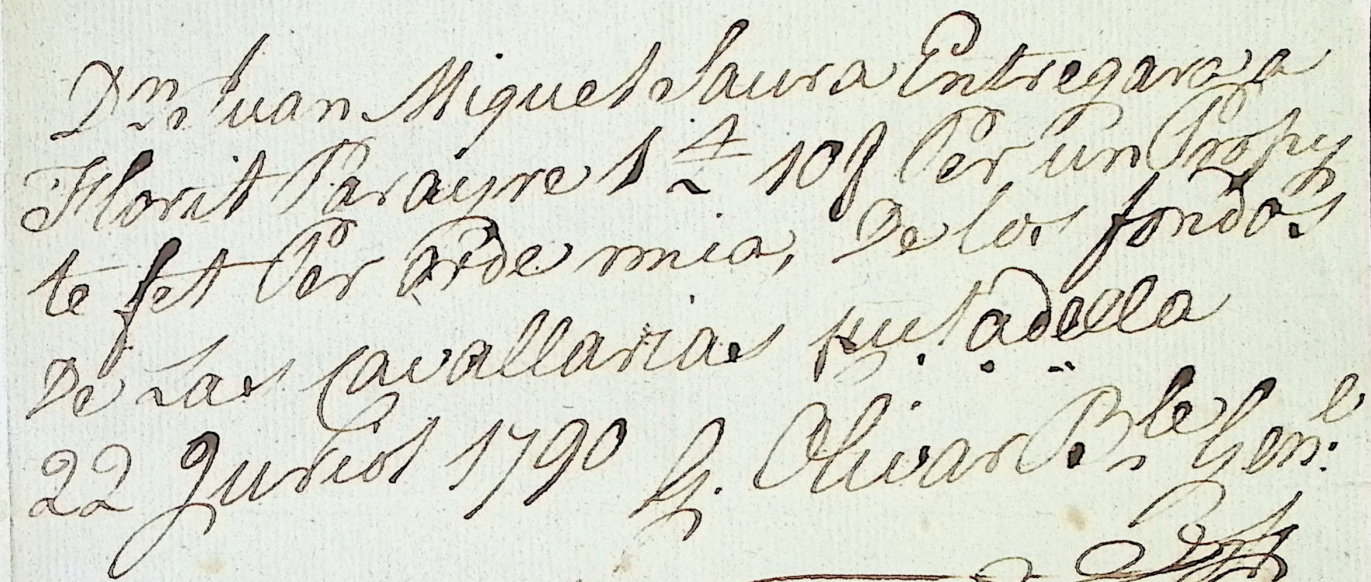 Dn. Juan Miquel Saura Entregara a
Florit Parayre 1 ⁤10ſ Per un Propy
te fet Per orde mia, De los fondos
De Las Cavallarias Siutadella
22 Juriol 1790 G. Olivar Ble Genl.